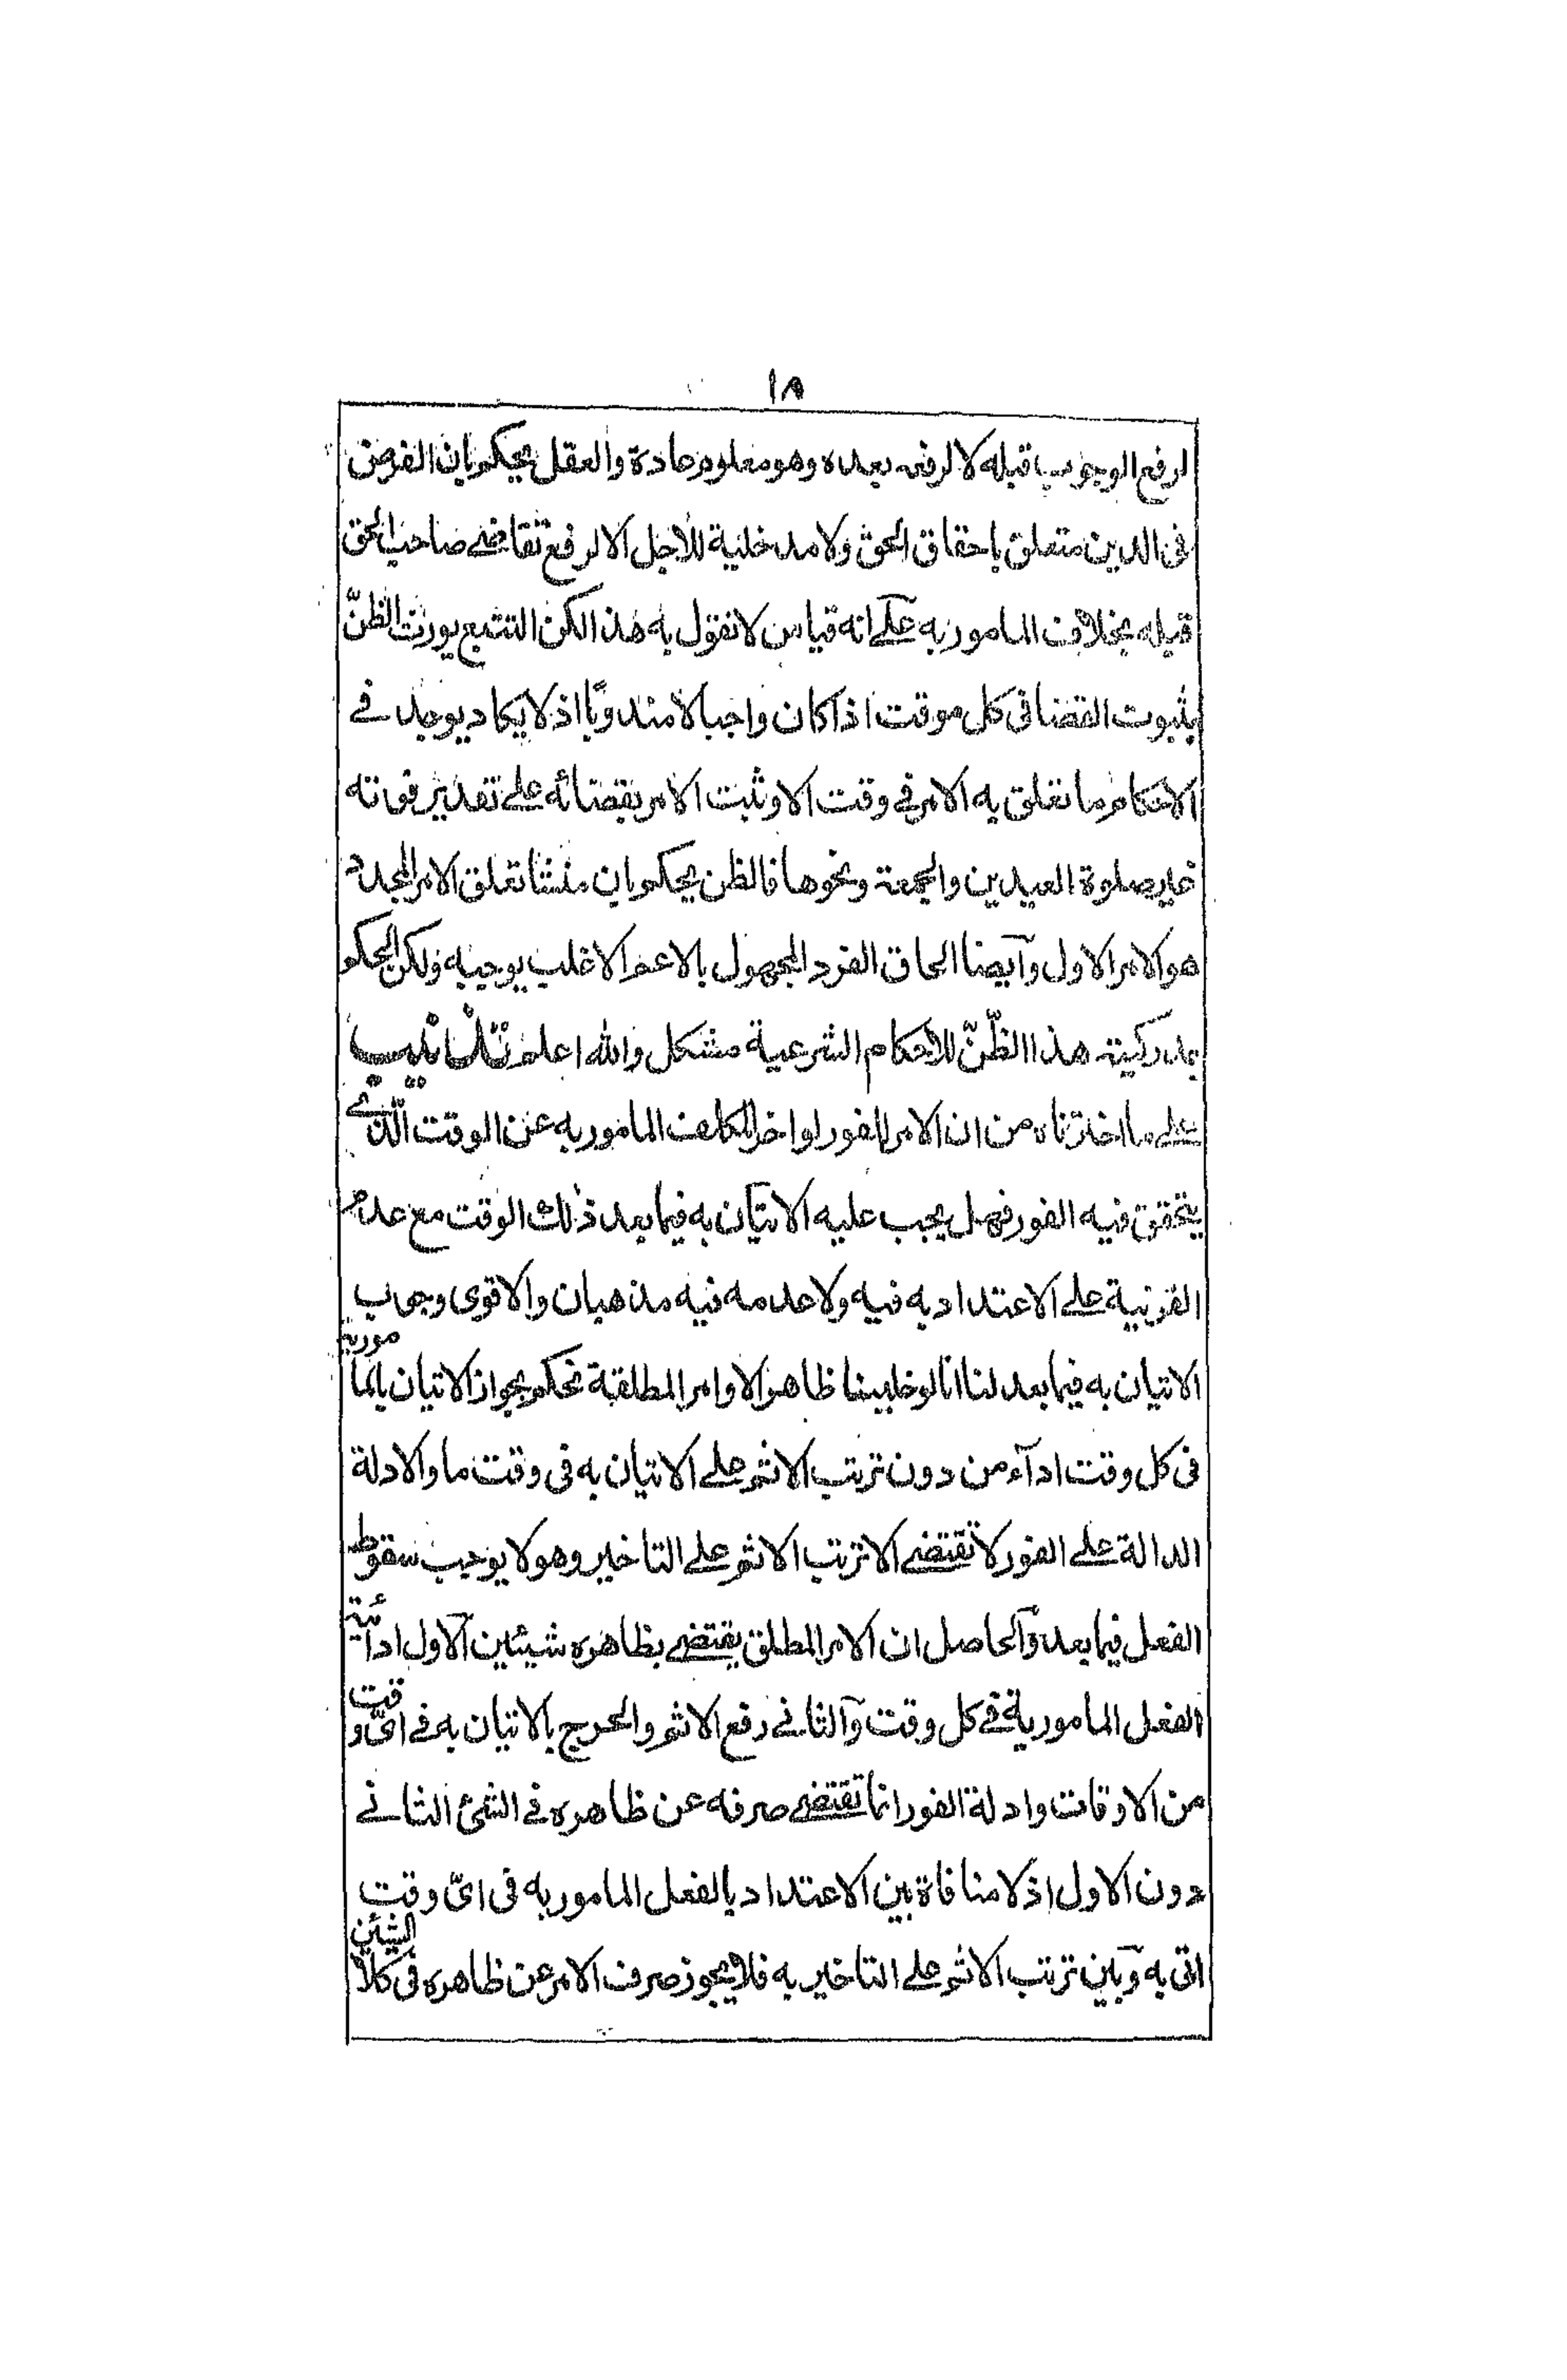 ١٨
لرفع الوجوب قبله لا لرفعه بعده وهو معلوم عادة والعقل يحكم بان الغرض
فى الدين متعلق باحقاق الحق ولا مدخلية للاجل الا لرفع تقاضے صاحب الحق
قبله بخلاف المامور به علے انه قياس لا نقول به هذا لكن التتبع يورث الظنّ
بثبوت القضا فى كل موقت اذا كان واجبا لا مندوبًا اذ لا يكاد يوجد فے
الاحكام ما تعلق به الامر فے وقت الا وثبت الامر بقضائه علے تقدير فواته
غير صلوة العيدين والجمعة ونحوها فالظن يحكم بان منشا تعلق الامر المجدد
هو الامر الاول وآيضا الحاق الفرد المجهول بالاعم الاغلب يوجبه ولكن الحكم
بمدركية هذا الظّنّ للاحكام الشرعية مشكل والله اعلم تذنيب
علے ما اخترناه من ان الامر للفور لو اخر المكلف المامور به عن الوقت الّذے
يتحقق فيه الفور فهل يجب عليه الاتيان به فيما بعد ذلك الوقت مع عدم
القرينية علے الاعتداد به فيه ولا عدمه فيه مذهبان والاقوى وجوب
الاتيان به فيما بعد لنا انا لو خلينا ظاهر الاوامر المطلقة نحكم بجواز الاتيان بالما مور به
فى كل وقت ادآء من دون ترتب الاثم علے الاتيان به فى وقت ما والادلة
الدالة علے الفور لا تقتضے الا ترتب الاثم علے التاخير وهو لا يوجب سقوط
الفعل فيما بعد وآلحاصل ان الامر المطلق يقتضے بظاهره شيئين آلاول ادائية
الفعل المامور به فے كل وقت وآلثانے رفع الاثم والحرج بالاتيان به فے اىّ وقت
من الاوقات وادلة الفور انما تقتضے صرفه عن ظاهره فے الشئ الثانے
دون الاول اذ لا منافاة بين الاعتداد بالفعل المامور به فى اىّ وقت
اتى به وبين ترتب الاثم علے التاخير به فلا يجوز صرف الامر عن ظاهره فى كلا الشيئين